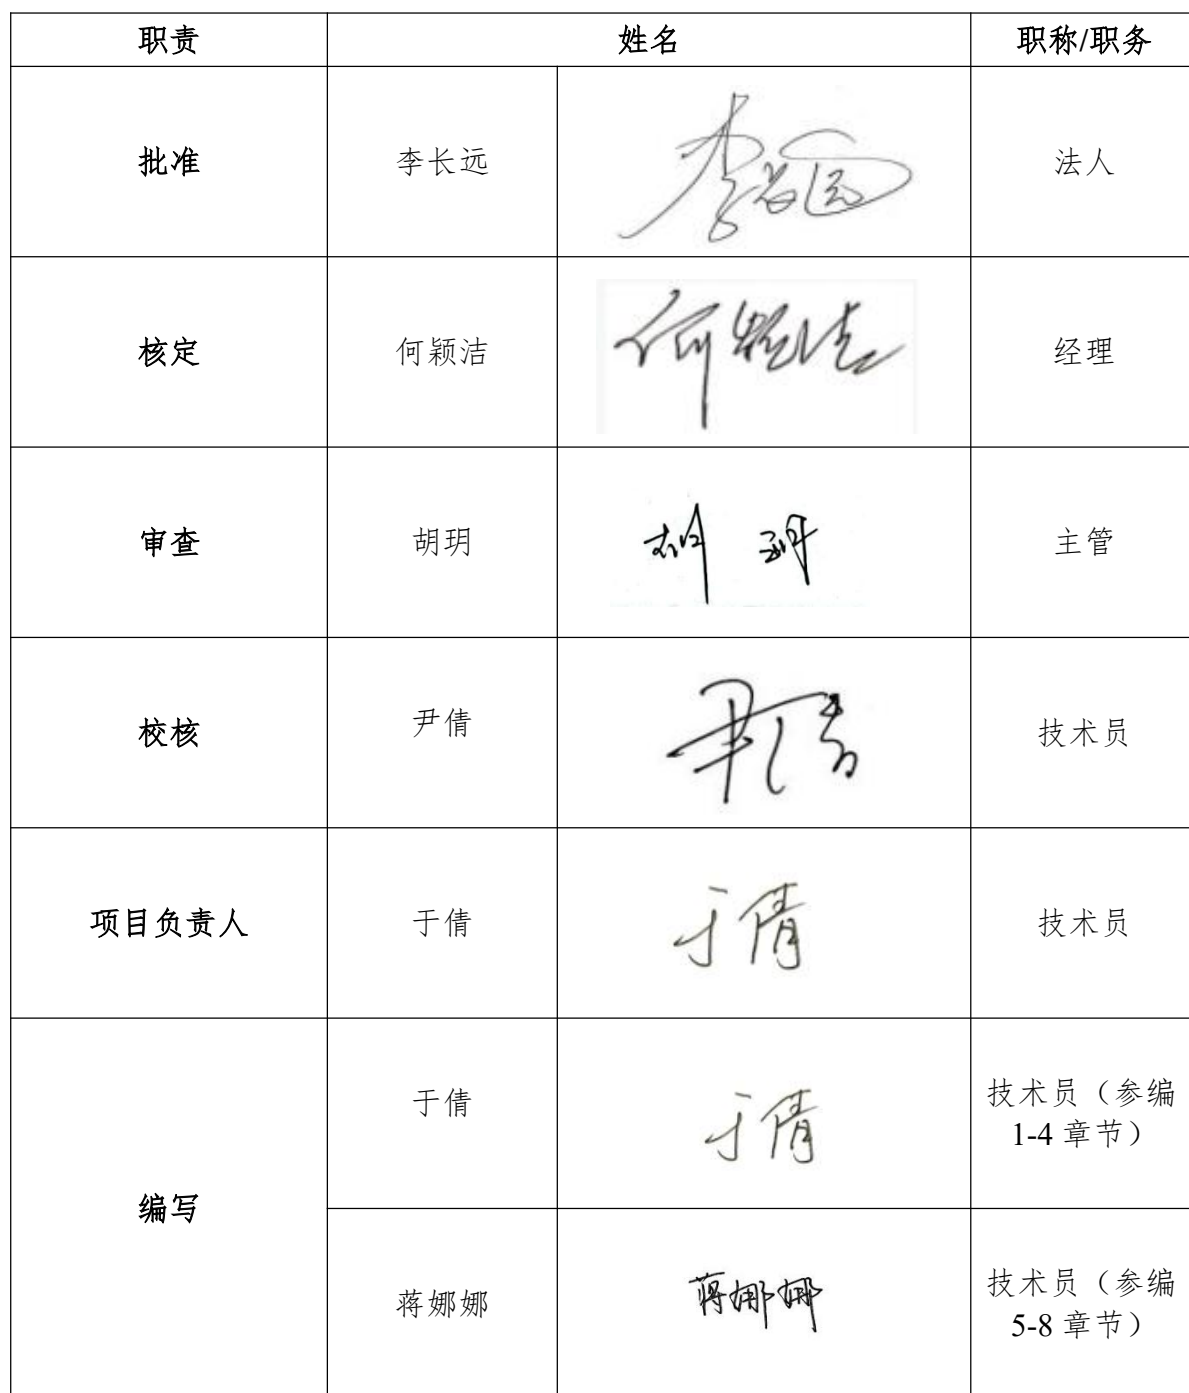 职责 姓名 职称/职务
批准 李长远 李长远 法人
核定 何颖洁 何颖洁 经理
审查 胡玥 胡玥 主管
校核 尹倩 尹倩 技术员
项目负责人 于倩 于倩 技术员
编写 于倩 于倩 技术员（参编
1-4 章节）
蒋娜娜 蒋娜娜 技术员（参编
5-8 章节）